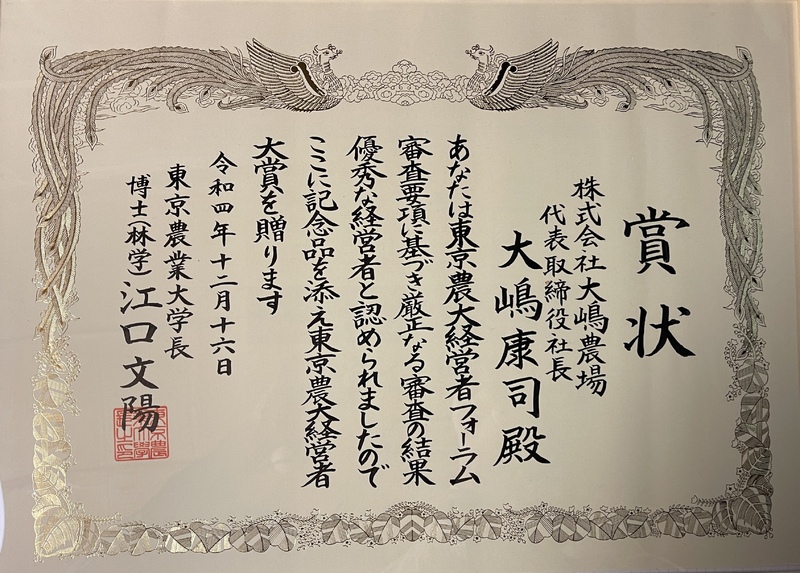 賞状
株式会社大嶋農場
代表取締役社長
大嶋康司殿
あなたは東京農大経営者フォーラム
審査要項に基づき厳正なる審査の結果
優秀な経営者と認められましたので
ここに記念品を添え東京農大経営者
大賞を贈ります
令和四年十二月十六日
東京農業大学長
博士(林学)江口文陽